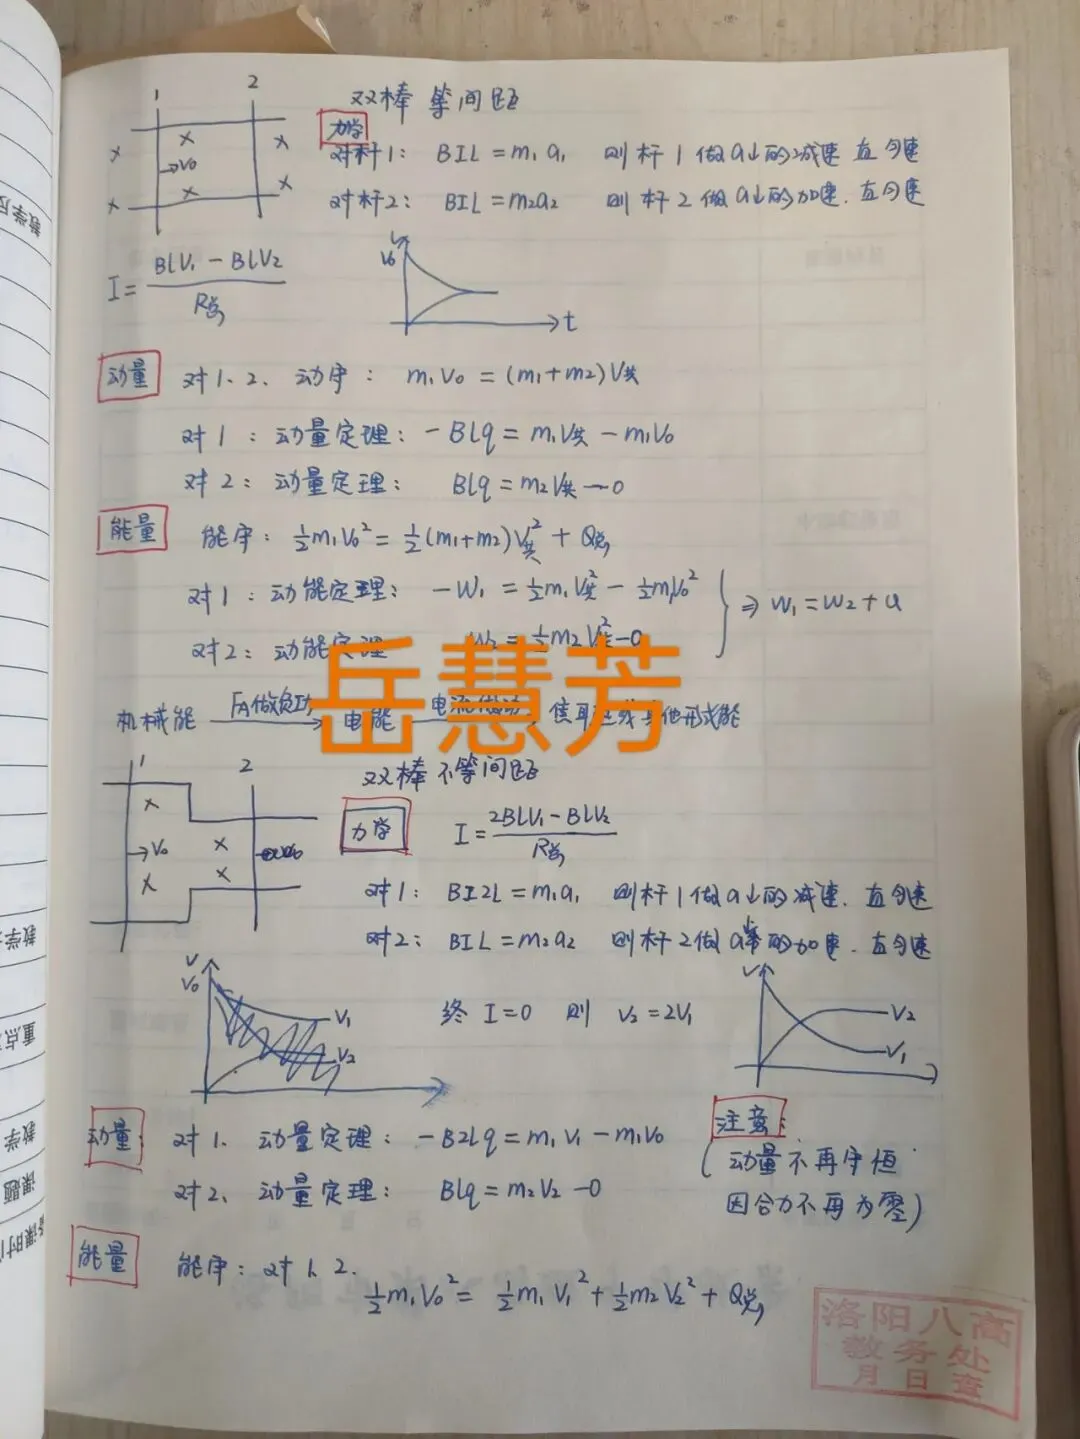 1 2
双棒 等间距
力学
对杆1: BIL=m₁a₁ 则杆1做a↓的减速 直匀速
对杆2: BIL=m₂a₂ 则杆2做a↓的加速. 直匀速
→V₀
I=(BLV₁-BLV₂)/R总
V
V₀
t
动量 对1、2、动守: m₁V₀=(m₁+m₂)V共
对1: 动量定理: -BLq=m₁V共-m₁V₀
对2: 动量定理: BLq=m₂V共-0
能量 能守: ½m₁V₀²=½(m₁+m₂)V共²+Q总
对1: 动能定理: -W₁=½m₁V共²-½m₁V₀²
⇒W₁=W₂+Q
对2: 动能定理 W₂=½m₂V共²-0
岳慧芳
机械能 FA做负功 电能 电流做功 焦耳热或其他形式能
1 2
双棒 不等间距
力学 I=(2BLV₁-BLV₂)/R总
→V₀
对1: BI2L=m₁a₁ 则杆1做a↓的减速. 直匀速
对2: BIL=m₂a₂ 则杆2做a↓的加速. 直匀速
V
V₀
V₁
V₂
终 I=0 则 V₂=2V₁
V
V₂
V₁
动量: 对1、动量定理: -B2Lq=m₁V₁-m₁V₀
对2、动量定理: BLq=m₂V₂-0
注意:
(动量不再守恒
因合力不再为零)
能量 能守: 对1、2.
½m₁V₀²=½m₁V₁²+½m₂V₂²+Q总
洛阳八高
教务处
月 日 查
教学反
教学
重点
教学
课题
备课时间